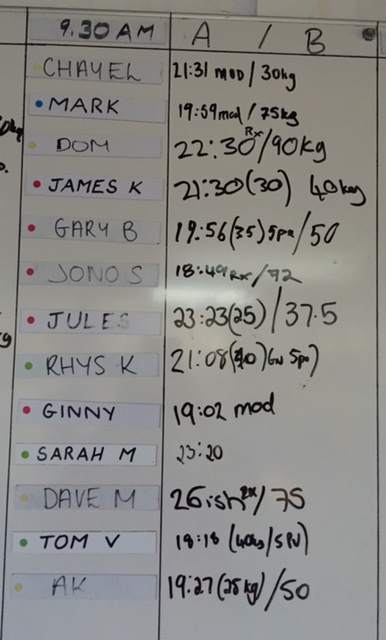 9.30 AM A / B
CHAYEL 21:31 mod / 30kg
MARK 19:59 mod / 75kg
DOM 22:30 Rx / 90kg
JAMES K 21:30 (30) 40kg
GARY B 19:56 (35) 5pu / 50
JONO S 18:49 Rx / 92
JULES 23:23 (25) / 37.5
RHYS K 21:08
GINNY 19:02 mod
SARAH M 23:20
DAVE M 26ish Rx / 75
TOM V 18:18
AK 19:27 (25kg) / 50